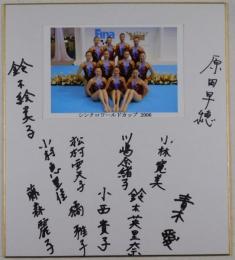 Fina
シンクロワールドカップ 2006
原田早穂
鈴木絵美子
小林寛美
青木愛
川嶋奈緒子
鈴木英里奈
松村亜矢子
小西貴子
橘雅子
小村恵里佳
藤森麗子